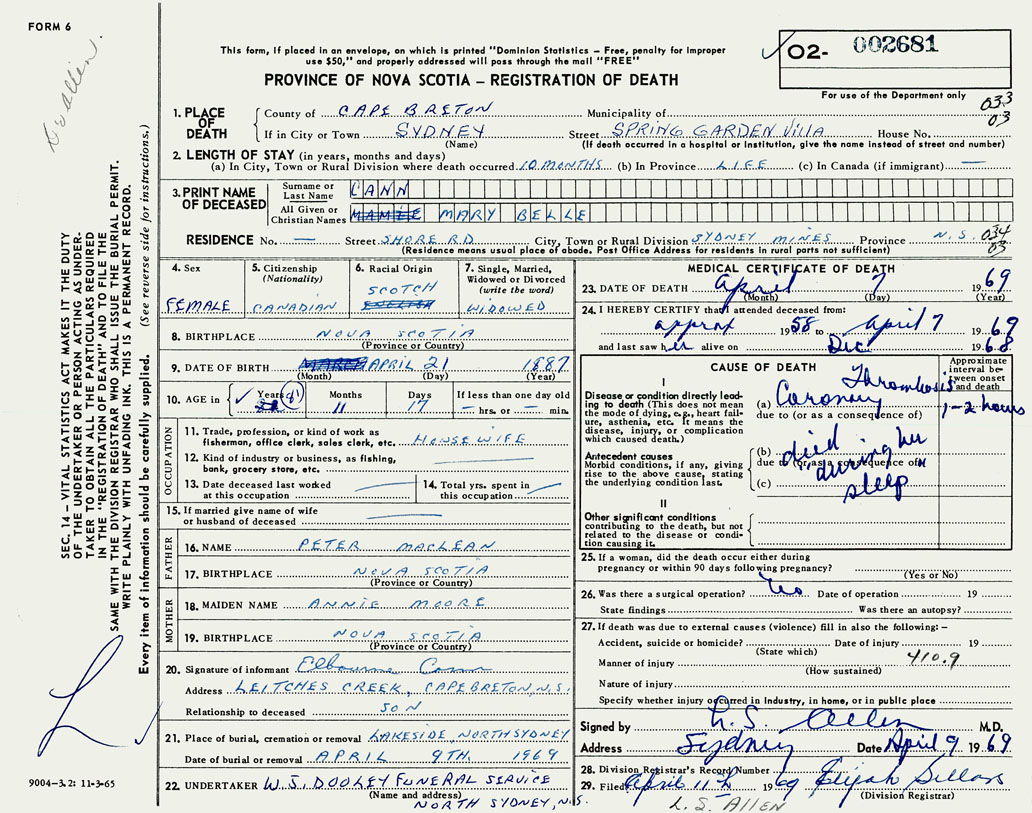 FORM 6
Dr Allen.
This form, if placed in an envelope, on which is printed "Dominion Statistics – Free, penalty for improper
use $50," and properly addressed will pass through the mail "FREE"
PROVINCE OF NOVA SCOTIA – REGISTRATION OF DEATH
02- 002681
For use of the Department only
033
03
1. PLACE OF DEATH
County of CAPE BRETON Municipality of
If in City or Town SYDNEY Street SPRING GARDEN VILLA House No.
(Name) (If death occurred in a hospital or institution, give the name instead of street and number)
2. LENGTH OF STAY (in years, months and days)
(a) In City, Town or Rural Division where death occurred 10 MONTHS (b) In Province LIFE (c) In Canada (if immigrant) —
3. PRINT NAME OF DECEASED
Surname or Last Name CANN
All Given or Christian Names MAMIE MARY BELLE
RESIDENCE No. — Street SHORE RD City, Town or Rural Division SYDNEY MINES Province N.S. 034
03
(Residence means usual place of abode. Post Office Address for residents in rural parts not sufficient)
4. Sex
FEMALE
5. Citizenship
(Nationality)
CANADIAN
6. Racial Origin
SCOTCH
7. Single, Married,
Widowed or Divorced
(write the word)
WIDOWED
8. BIRTHPLACE NOVA SCOTIA
(Province or Country)
9. DATE OF BIRTH MARCH APRIL 21 1887
(Month) (Day) (Year)
10. AGE in
Years 81
Months 11
Days 17
If less than one day old
— hrs. or — min.
OCCUPATION
11. Trade, profession, or kind of work as
fisherman, office clerk, sales clerk, etc. HOUSE WIFE
12. Kind of industry or business, as fishing,
bank, grocery store, etc.
13. Date deceased last worked
at this occupation
14. Total yrs. spent in
this occupation
15. If married give name of wife
or husband of deceased
FATHER
16. NAME PETER MACLEAN
17. BIRTHPLACE NOVA SCOTIA
(Province or Country)
MOTHER
18. MAIDEN NAME ANNIE MOORE
19. BIRTHPLACE NOVA SCOTIA
(Province or Country)
20. Signature of informant Elbourne Cann
Address LEITCHES CREEK, CAPE BRETON, N.S.
Relationship to deceased SON
21. Place of burial, cremation or removal LAKESIDE, NORTH SYDNEY
Date of burial or removal APRIL 9TH. 1969
22. UNDERTAKER W.S. DOOLEY FUNERAL SERVICE
(Name and address)
NORTH SYDNEY, N.S.
MEDICAL CERTIFICATE OF DEATH
23. DATE OF DEATH April 7 1969
(Month) (Day) (Year)
24. I HEREBY CERTIFY that I attended deceased from:
approx 1958 to April 7 1969
and last saw her alive on Dec 1968
CAUSE OF DEATH
Approximate
interval be-
tween onset
and death
I
Disease or condition directly lead-
ing to death (This does not mean
the mode of dying, e.g., heart fail-
ure, asthenia, etc. It means the
disease, injury, or complication
which caused death.)
(a) Coronary Thrombosis
1-2 hours
due to (or as a consequence of)
Antecedent causes
Morbid conditions, if any, giving
rise to the above cause, stating
the underlying condition last.
(b) died
due to (or as a consequence of)
"during her
(c) sleep
II
Other significant conditions
contributing to the death, but not
related to the disease or condi-
tion causing it.
25. If a woman, did the death occur either during
pregnancy or within 90 days following pregnancy?
(Yes or No)
26. Was there a surgical operation? Date of operation 19
State findings Was there an autopsy?
27. If death was due to external causes (violence) fill in also the following: –
Accident, suicide or homicide? Date of injury 19
(State which)
Manner of injury 410.9
(How sustained)
Nature of injury
Specify whether injury occurred in industry, in home, or in public place
Signed by L.S. Allen M.D.
Address Sydney Date April 9 1969
28. Division Registrar's Record Number
29. Filed April 11th 1969 Elijah Sellars
(Division Registrar)
L. S. ALLEN
SEC. 14 – VITAL STATISTICS ACT MAKES IT THE DUTY
OF THE UNDERTAKER OR PERSON ACTING AS UNDER-
TAKER TO OBTAIN ALL THE PARTICULARS REQUIRED
IN THE "REGISTRATION OF DEATH" AND TO FILE THE
SAME WITH THE DIVISION REGISTRAR WHO SHALL ISSUE THE BURIAL PERMIT.
WRITE PLAINLY WITH UNFADING INK. THIS IS A PERMANENT RECORD.
Every item of information should be carefully supplied. (See reverse side for instructions.)
9004–3.2: 11-3-65